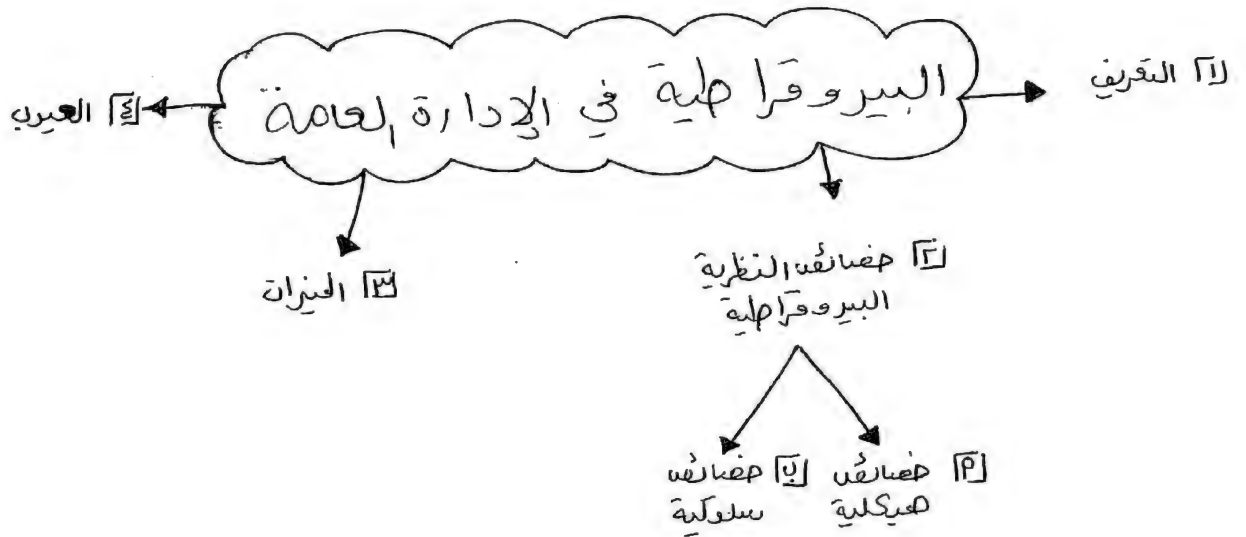 البيروقراطية في الإدارة العامة
١ التعريف
٢ خصائص النظرية
البيروقراطية
أ خصائص
هيكلية
ب خصائص
سلوكية
٣ الميزات
٤ العيوب